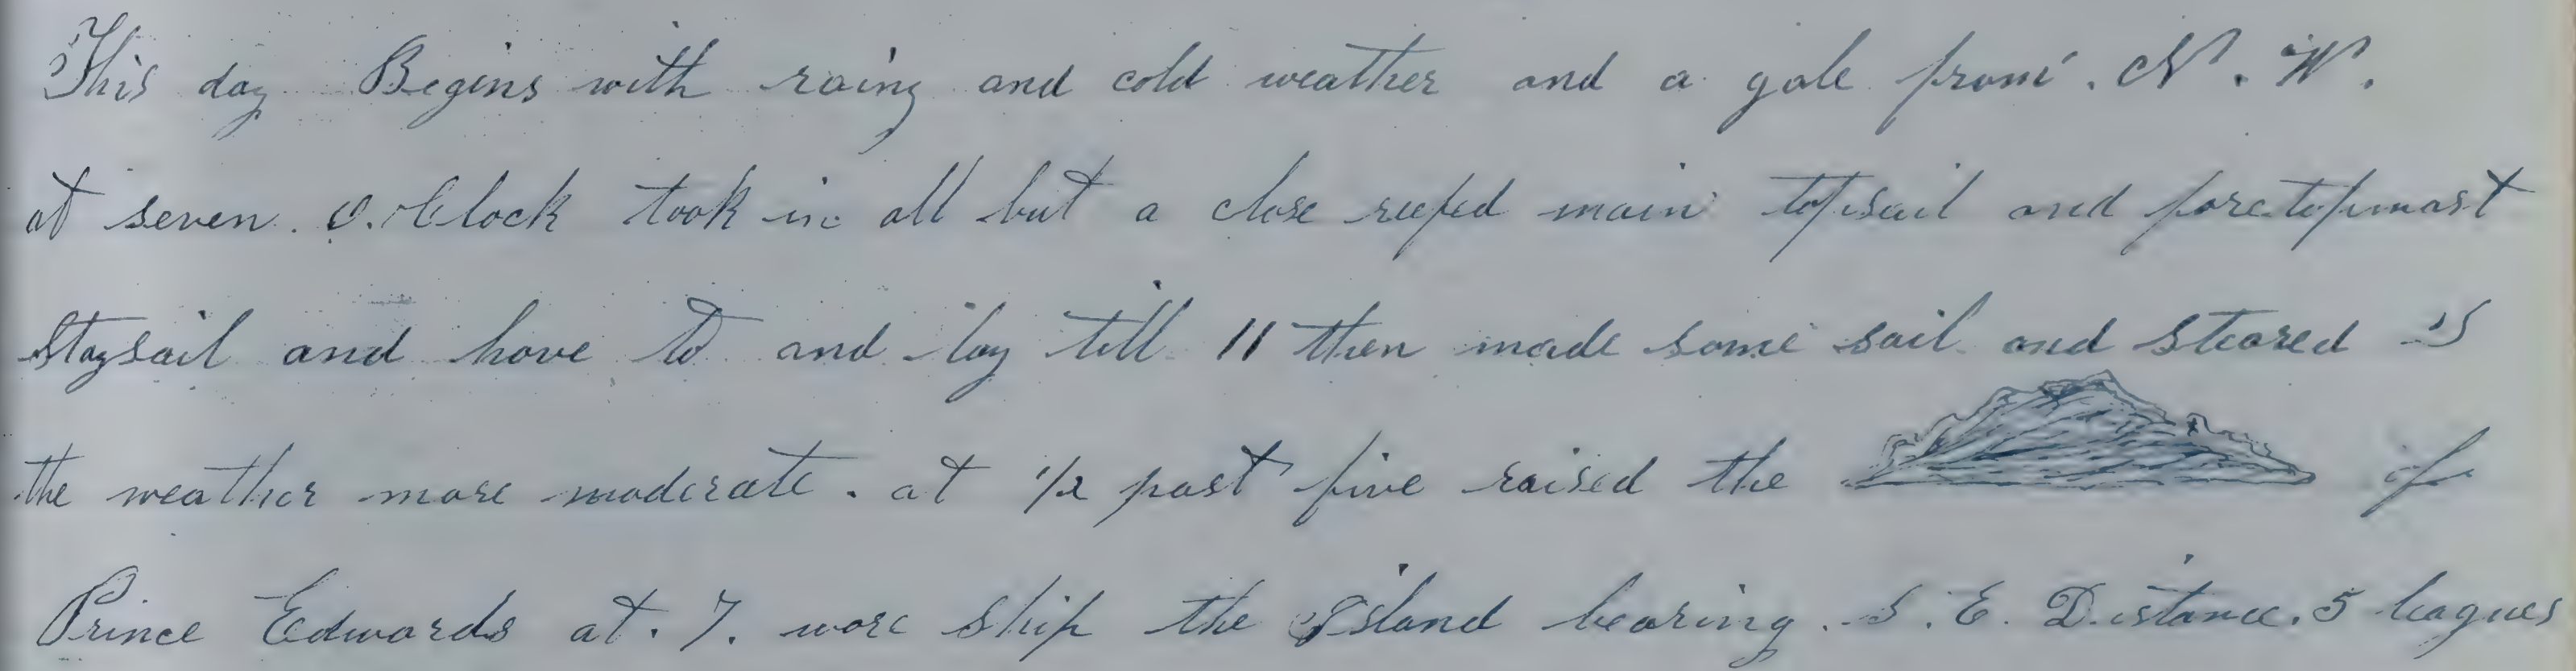 This day Begins with rainy and cold weather and a gale from . N . W .
at seven . O.Clock took in all but a close reefed main topsail and foretopmast
Staysail and hove to and lay till 11 then made some sail and steared S
the weather more moderate . at 1/2 past five raised the of
Prince Edwards at . 7 . wore ship the Island bearing . S . E . Distance . 5 leagues